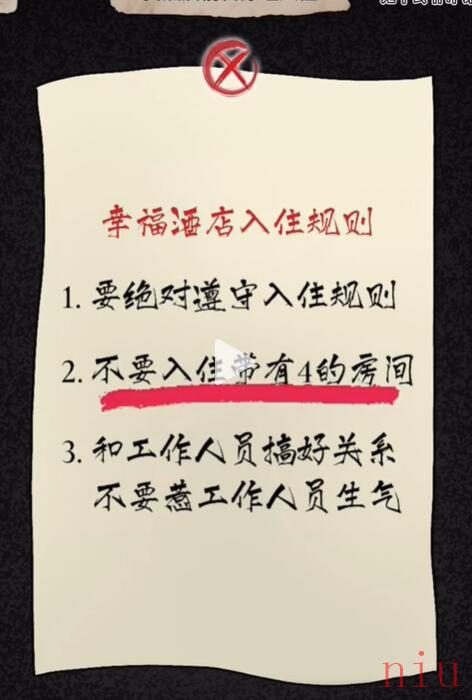 幸福酒店入住规则
1. 要绝对遵守入住规则
2. 不要入住带有4的房间
3. 和工作人员搞好关系
不要惹工作人员生气
niu